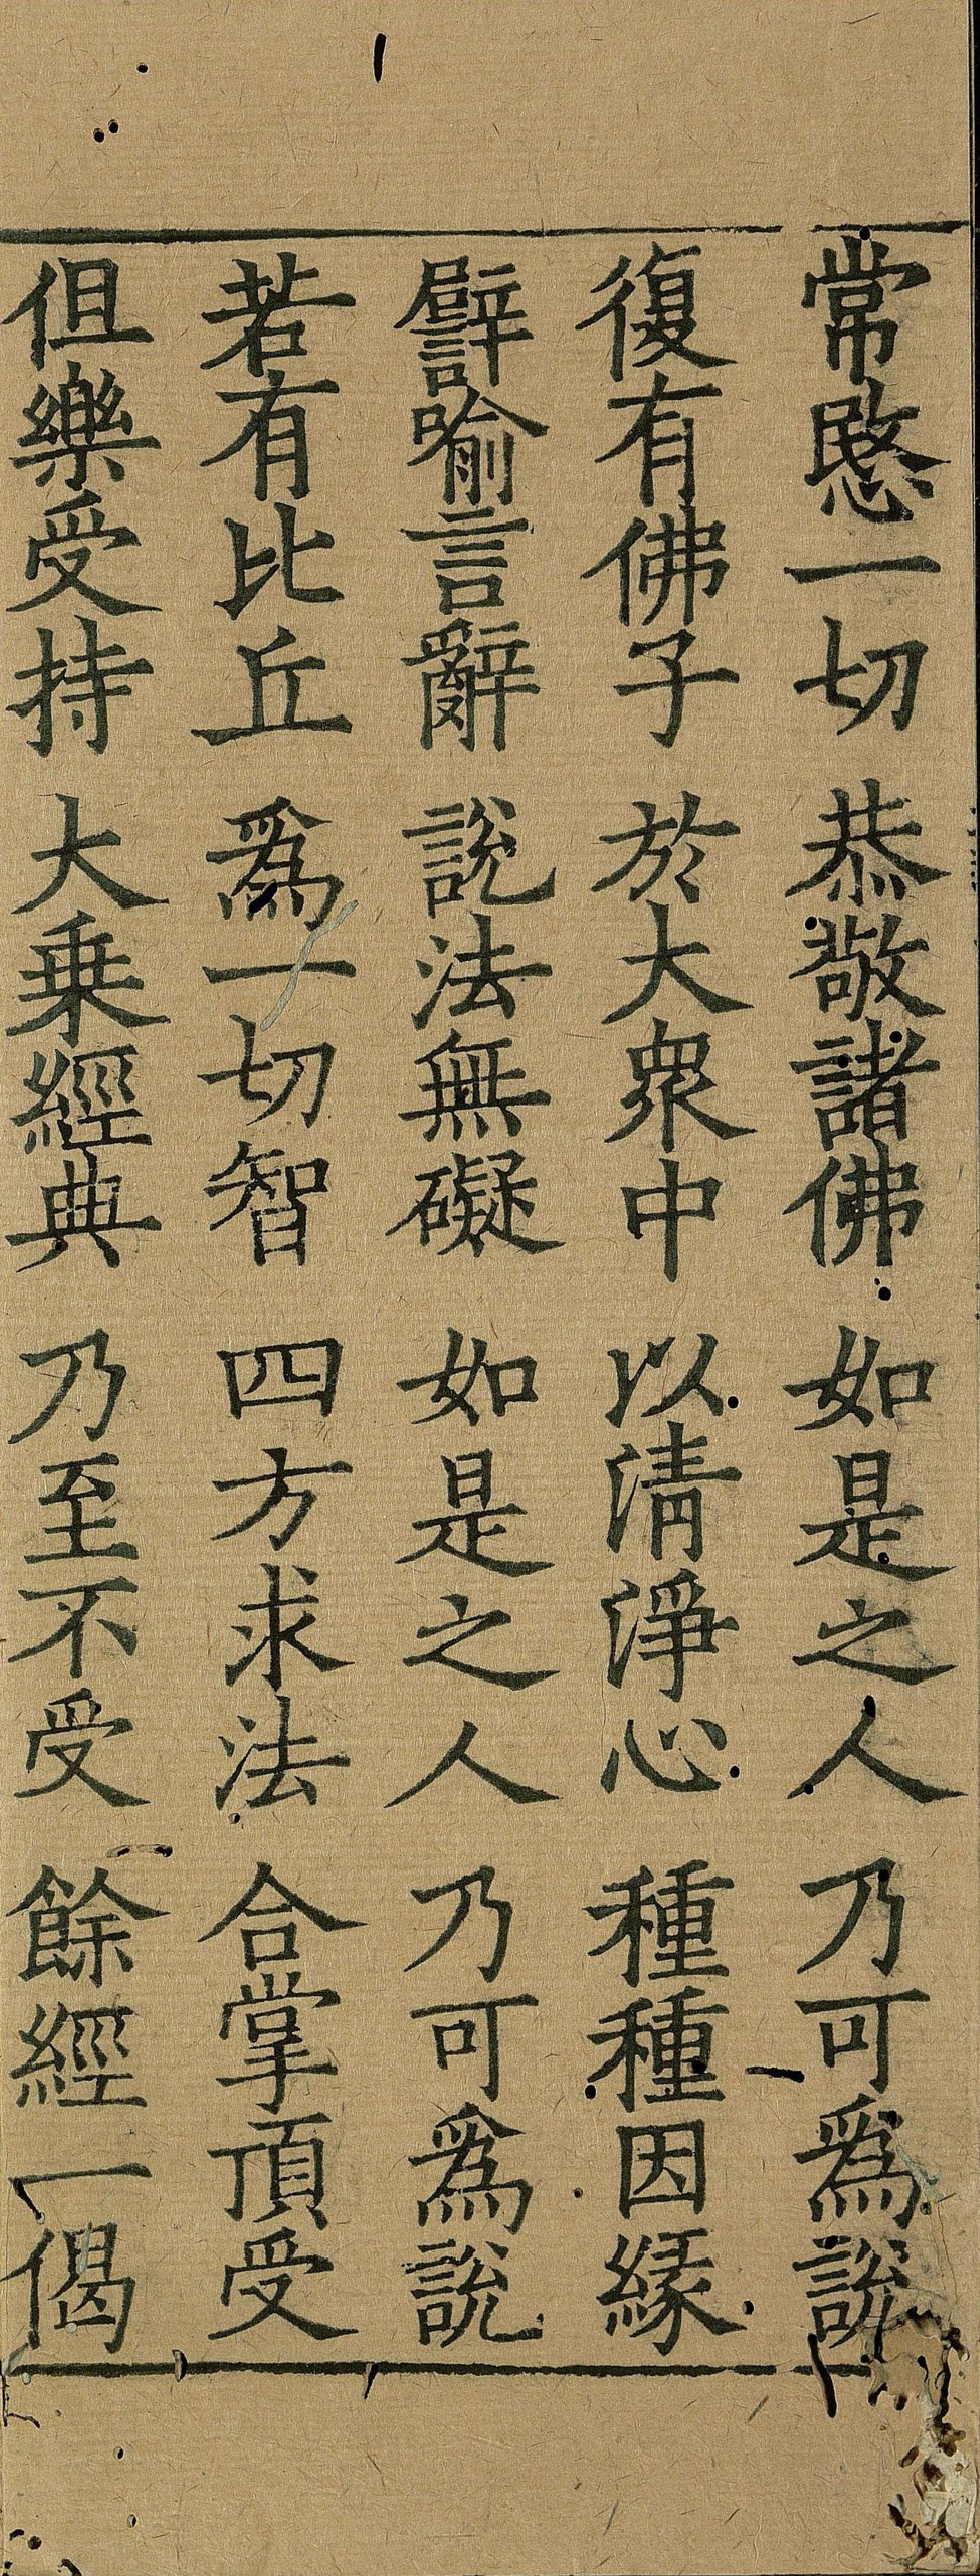 常愍一切　恭敬諸佛　如是之人　乃可爲說
復有佛子　於大衆中　以清淨心　種種因緣
譬喻言辭　說法無礙　如是之人　乃可爲說
若有比丘　爲一切智　四方求法　合掌頂受
但樂受持　大乗經典　乃至不受　餘經一偈